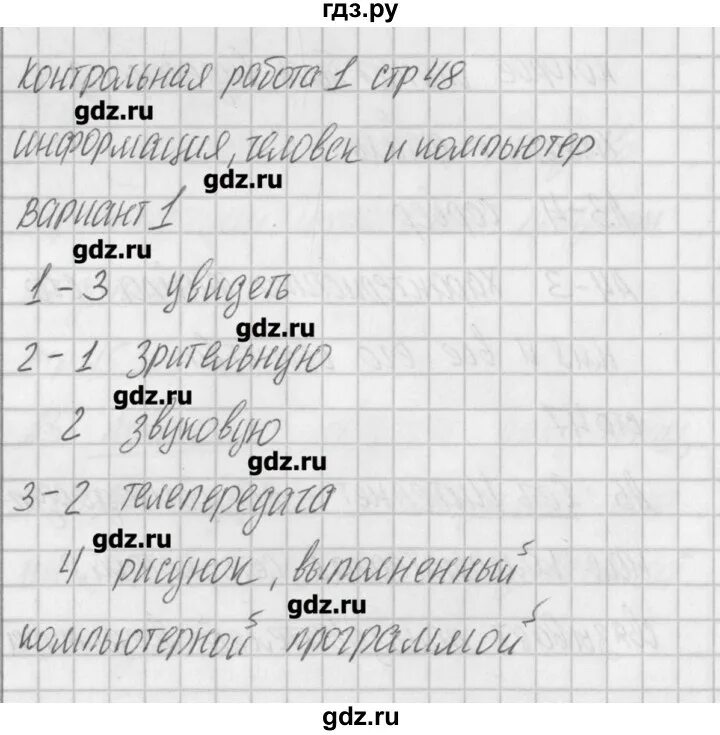 гдз.ру
контрольная работа 1 стр 48
gdz.ru
информация, человек и компьютер
gdz.ru
вариант 1
gdz.ru
1-3 увидеть
gdz.ru
2-1 зрительную
gdz.ru
2 звуковую
gdz.ru
3-2 телепередача
gdz.ru
4 рисунок, выполненный
gdz.ru
компьютерной программой
gdz.ru